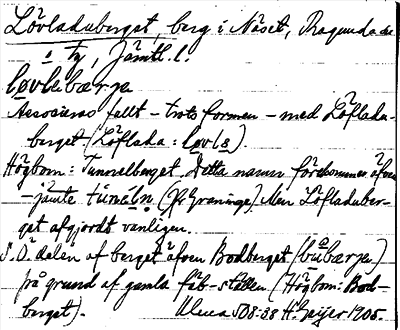 Lövladuberget, berg i Näset, Ragunda sn
o Tg, Jämtl. l.
løvlebærja
Associeras fullt – trots formen – med Löfladu-
berget (Löflada: løv(s).
Högbom: Tunnelberget. Detta namn förekommer äfven
– jämte tunéln. (jfr Graninge). Men Löfladuber-
get afgjordt vanligen.
S.Ö. delen af berget äfven Bodberget (bubærja)
på grund af gamla fäb-ställen (Högbom: Bod-
berget).
H. Geijer 1905.